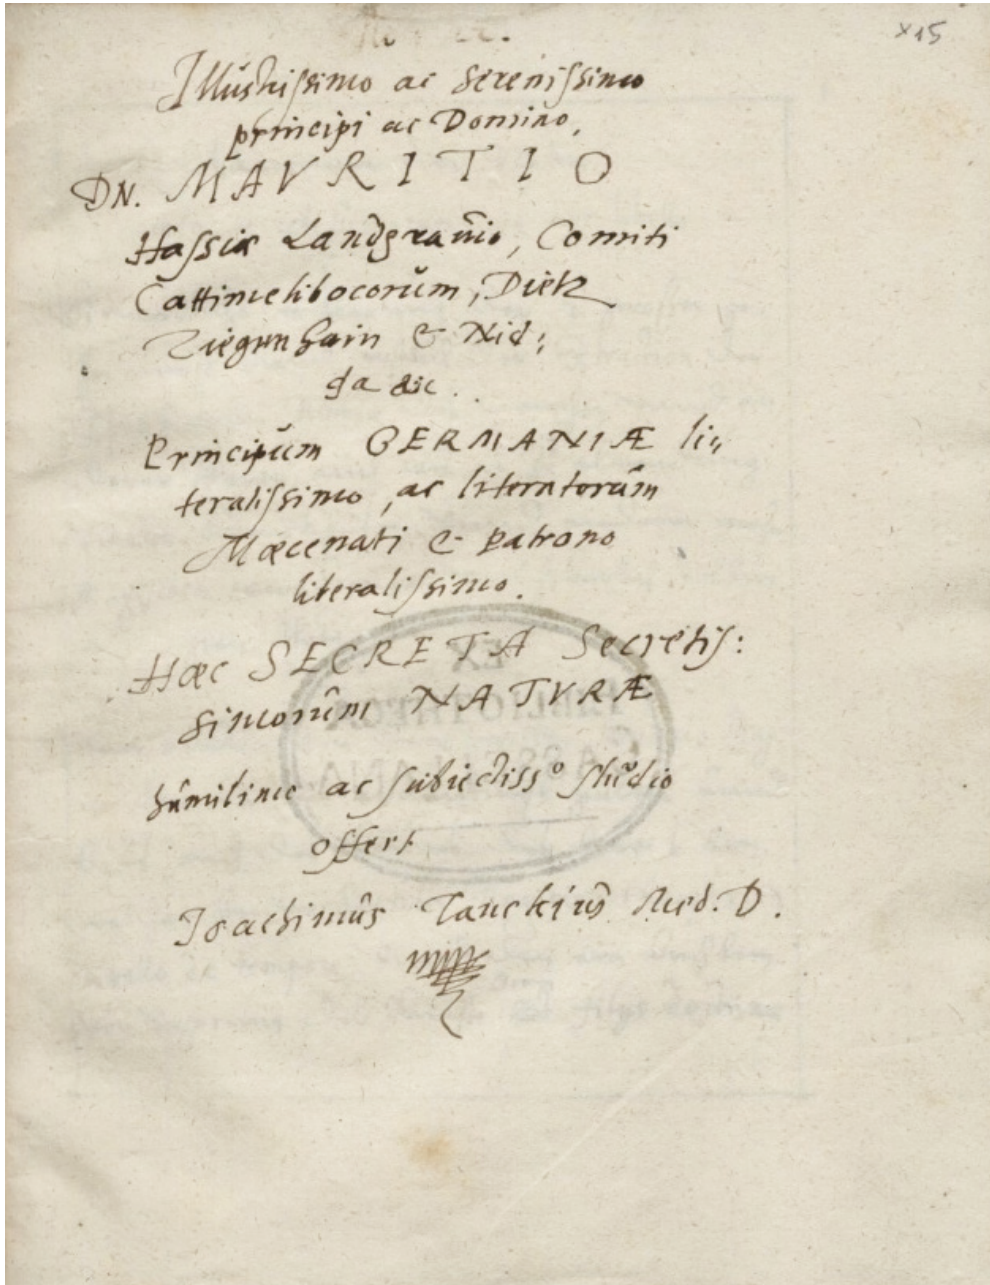 ×15
Illustrissimo ac Serenissimo
principi ac Domino,
DN. MAVRITIO
Hassiæ Landgravio, Comiti
Cattimelibocorum, Dietz
Ziegenhain & Nid:
da &c.
Principum GERMANIÆ li„
teralissimo, ac literatorum
Mœcenati & patrono
liberalissimo.
Hæc SECRETA Secretis:
simorum NATVRÆ
humilime ac subiectiss⁰ studio
offert
Ioachimus Tanckius Med. D.
EX
BIBLIOTHECA
CASSELLANA